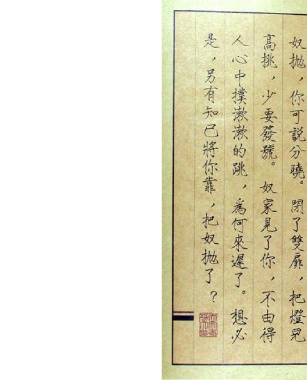 奴拋，你可說分曉。閉了雙扉，把燈兒
高挑，少要發號。奴家見了你，不由得
人心中撲漱漱的跳，為何來遲了。想必
是，另有知己將你靠，把奴拋了？